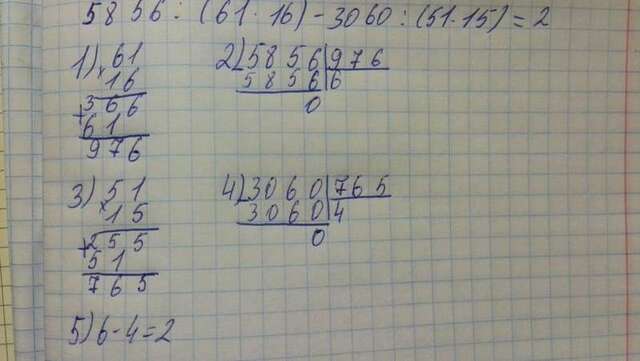 5856 : (61 · 16) - 3060 : (51 · 15) = 2
1) 61
× 16
366
+ 61
976
2) 5856 | 976
5856 | 6
0
3) 51
× 15
255
+ 51
765
4) 3060 | 765
3060 | 4
0
5) 6 - 4 = 2